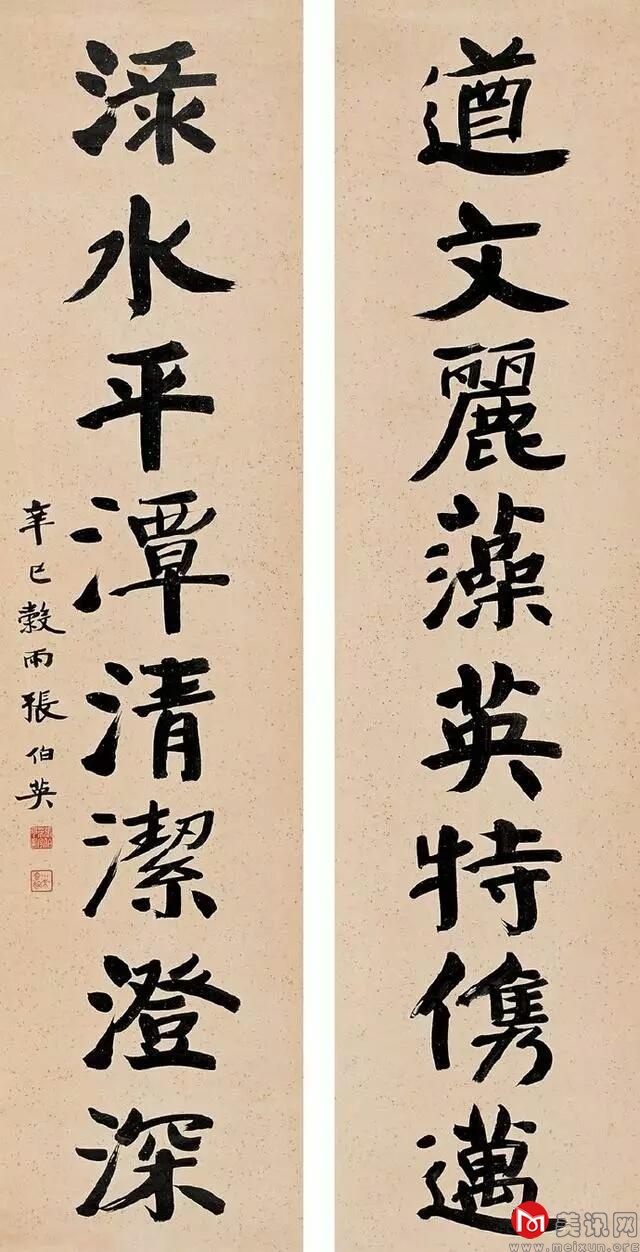 遒文麗藻英特儁邁
渌水平潭清潔澄深
辛巳穀雨張伯英
美讯网
www.meixun.org